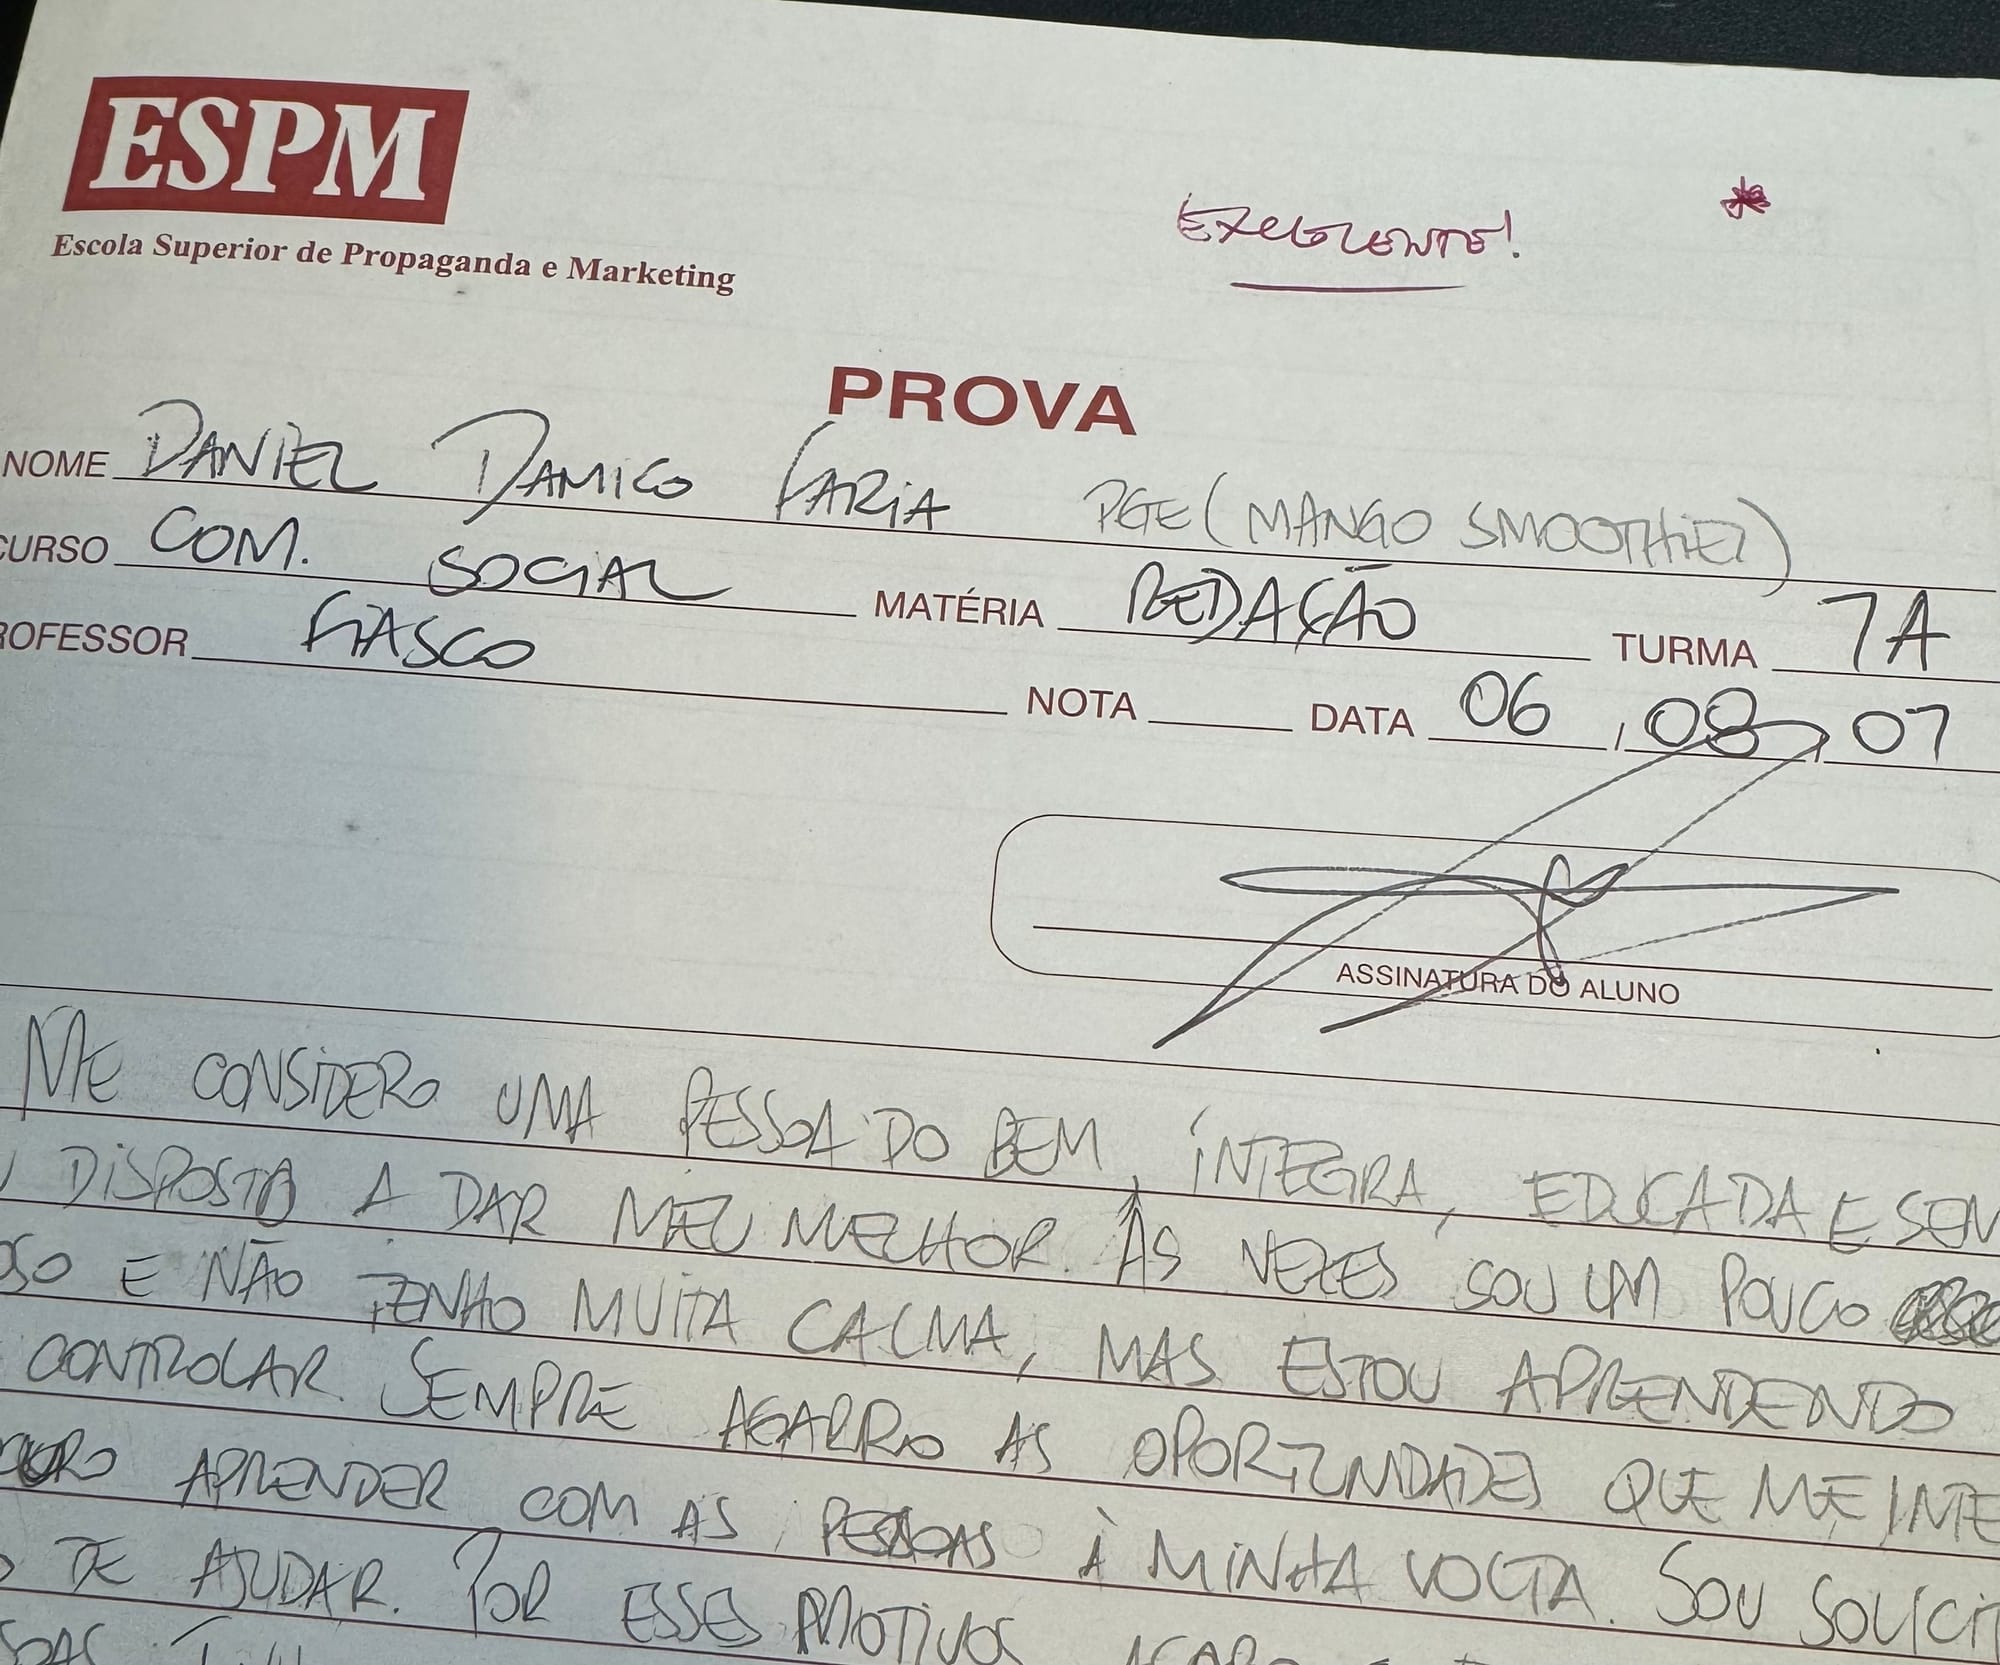 ESPM
Escola Superior de Propaganda e Marketing
EXCELENTE!
PROVA
NOME DANIEL DAMICO FARIA PGE (MANGO SMOOTHIE)
CURSO COM. SOCIAL MATÉRIA REDAÇÃO TURMA 7A
PROFESSOR FIASCO NOTA DATA 06/08/07
ASSINATURA DO ALUNO
ME CONSIDERO UMA PESSOA DO BEM, ÍNTEGRA, EDUCADA E SEM
DISPOSTA A DAR MEU MELHOR. ÀS VEZES SOU UM POUCO
OSO E NÃO TENHO MUITA CALMA, MAS ESTOU APRENDENDO
CONTROLAR. SEMPRE AGARRO AS OPORTUNIDADES QUE ME INTE
APRENDER COM AS PESSOAS À MINHA VOLTA. SOU SOLICIT
O DE AJUDAR. POR ESSES MOTIVOS